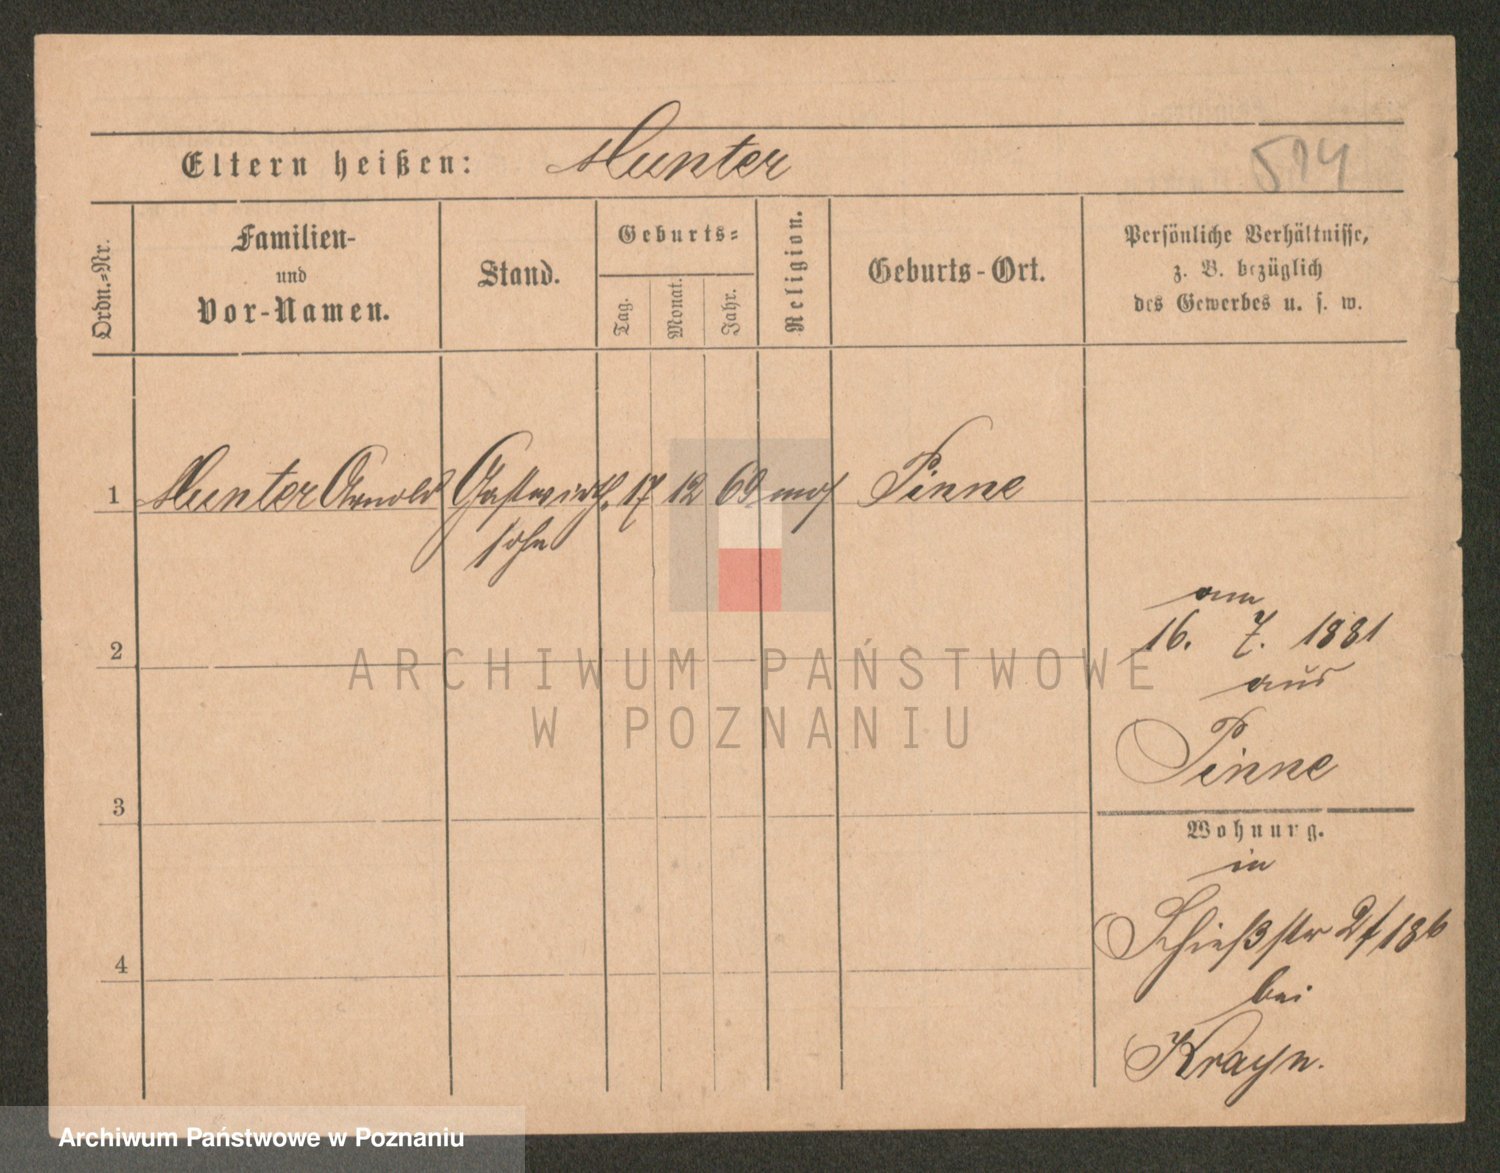 Eltern heißen: Munter
514
Ordn.-Nr.
Familien-
und
Vor-Namen.
Stand.
Geburts-
Tag.
Monat.
Jahr.
Religion.
Geburts-Ort.
Persönliche Verhältnisse,
z. B. bezüglich
des Gewerbes u. s. w.
1 Munter Arnold Gastwirth. 17 12 69 mos Pinne
sohn
am
2 16. 7. 1881
aus
Pinne
3
Wohnung.
in
Schießstr 2/186
4
bei
Krayn.
ARCHIWUM PAŃSTWOWE
W POZNANIU
Archiwum Państwowe w Poznaniu